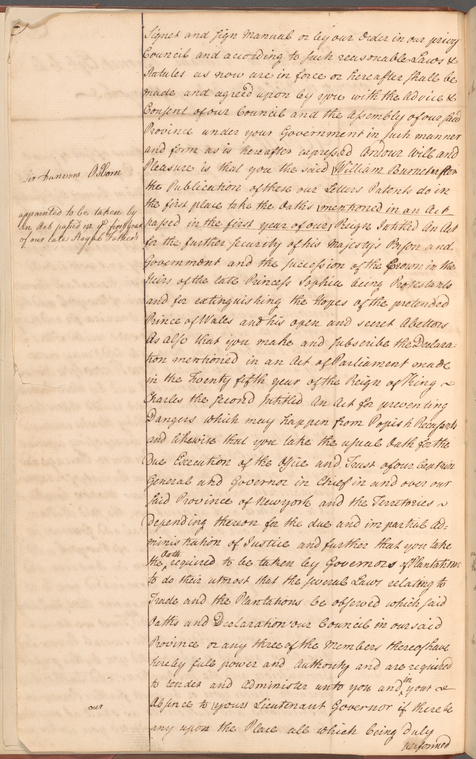 Signet and Sign Manual or by our Order in our privy
Council and according to such reasonable Laws &
Statutes as now are in force or hereafter shall be
made and agreed upon by you with the Advice &
Consent of our Council and the Assembly of our said
Province under your Government in such manner
and form as is hereafter expressed And our Will and
Pleasure is that you the said William Burnet after
the Publication of these our Letters Patents do in
the first place take the Oaths mentioned in an Act
passed in the first year of our Reign Intitled An Act
for the further security of his Majesty's Person and
Government and the succession of the Crown in the
Heirs of the late Princess Sophia being Protestants
and for extinguishing the Hopes of the pretended
Prince of Wales and his open and secret Abettors
As also that you make and subscribe the Declara-
tion mentioned in an Act of Parliament made
in the Twenty fifth year of the Reign of King
Charles the second Intitled An Act for preventing
Dangers which may happen from Popish Recusants
and likewise that you take the usual Oath for the
Due Execution of the Office and Trust of our Captain
General and Governor in Cheif in and over our
said Province of New york and the Territories
depending thereon for the due and impartial Ad-
ministration of Justice and further that you take
the Oath required to be taken by Governors of Plantations
to do their utmost that the several Laws relating to
Trade and the Plantations be observed which said
Oaths and Declaration our Council in our said
Province or any three of the Members thereof have
hereby full power and Authority and are required
to tender and administer unto you and in your
Absence to your Lieutenant Governor if there be
any upon the Place all which being duly
performed
Sir Danvers Osborn
appointed to be taken by
an Act passed in ye first year
of our late Royal Father's
our